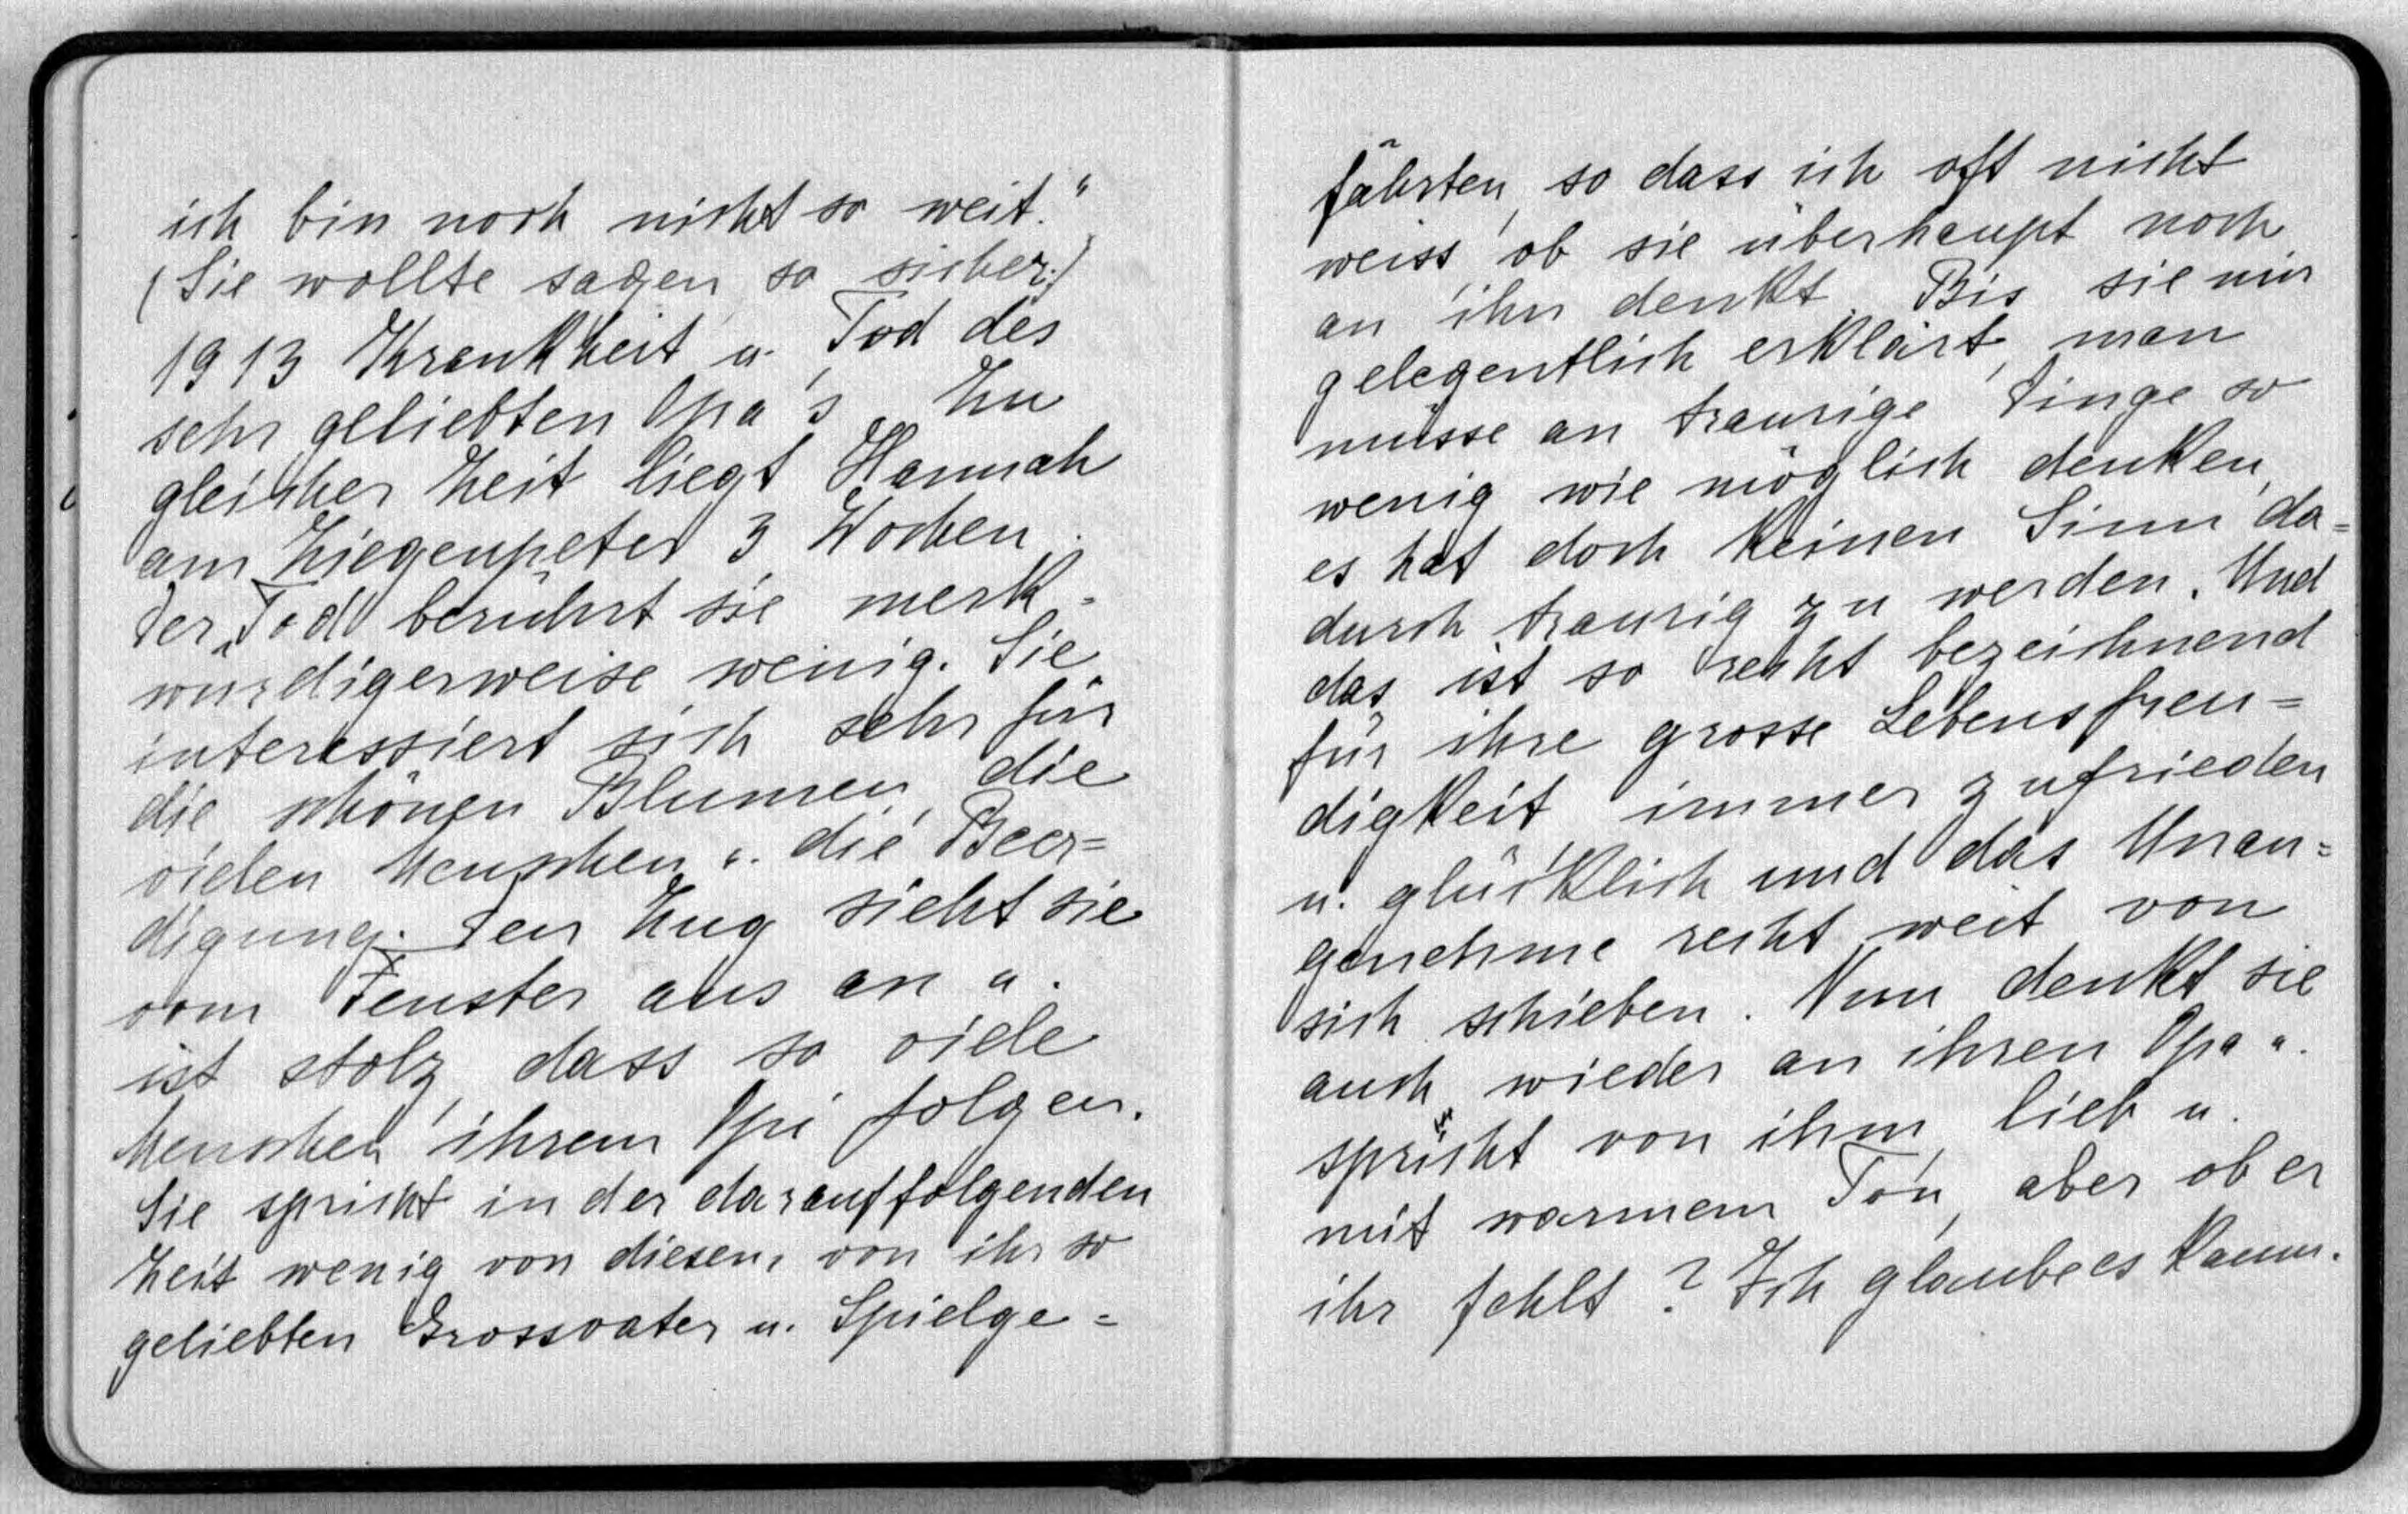 ich bin noch nicht so weit."
(Sie wollte sagen so sicher.)
1913 Krankheit u. Tod des
sehr geliebten Opa's. Zu
gleicher Zeit liegt Hannah
am Ziegenpeter 3 Wochen.
Der Tod berührt sie merk=
würdigerweise wenig. Sie
interessiert sich sehr für
die schönen Blumen, die
vielen Menschen u. die Beer=
digung. Den Zug sieht sie
vom Fenster aus an u.
ist stolz, dass so viele
Menschen ihrem Opi folgen.
Sie spricht in der darauffolgenden
Zeit wenig von diesem, von ihr so
geliebten Grossvater u. Spielge=
fährten, so dass ich oft nicht
weiss, ob sie überhaupt noch
an ihn denkt. Bis sie mir
gelegentlich erklärt, man
müsse an traurige Dinge so
wenig wie möglich denken,
es hat doch keinen Sinn da=
durch traurig zu werden. Und
das ist so recht bezeichnend
für ihre grosse Lebensfreu=
digkeit immer zufrieden
u. glücklich und das Unan=
genehme recht weit von
sich schieben. Nun denkt sie
auch wieder an ihren Opa u.
spricht von ihm, lieb u.
mit warmem Ton, aber ob er
ihr fehlt? Ich glaube es kaum.